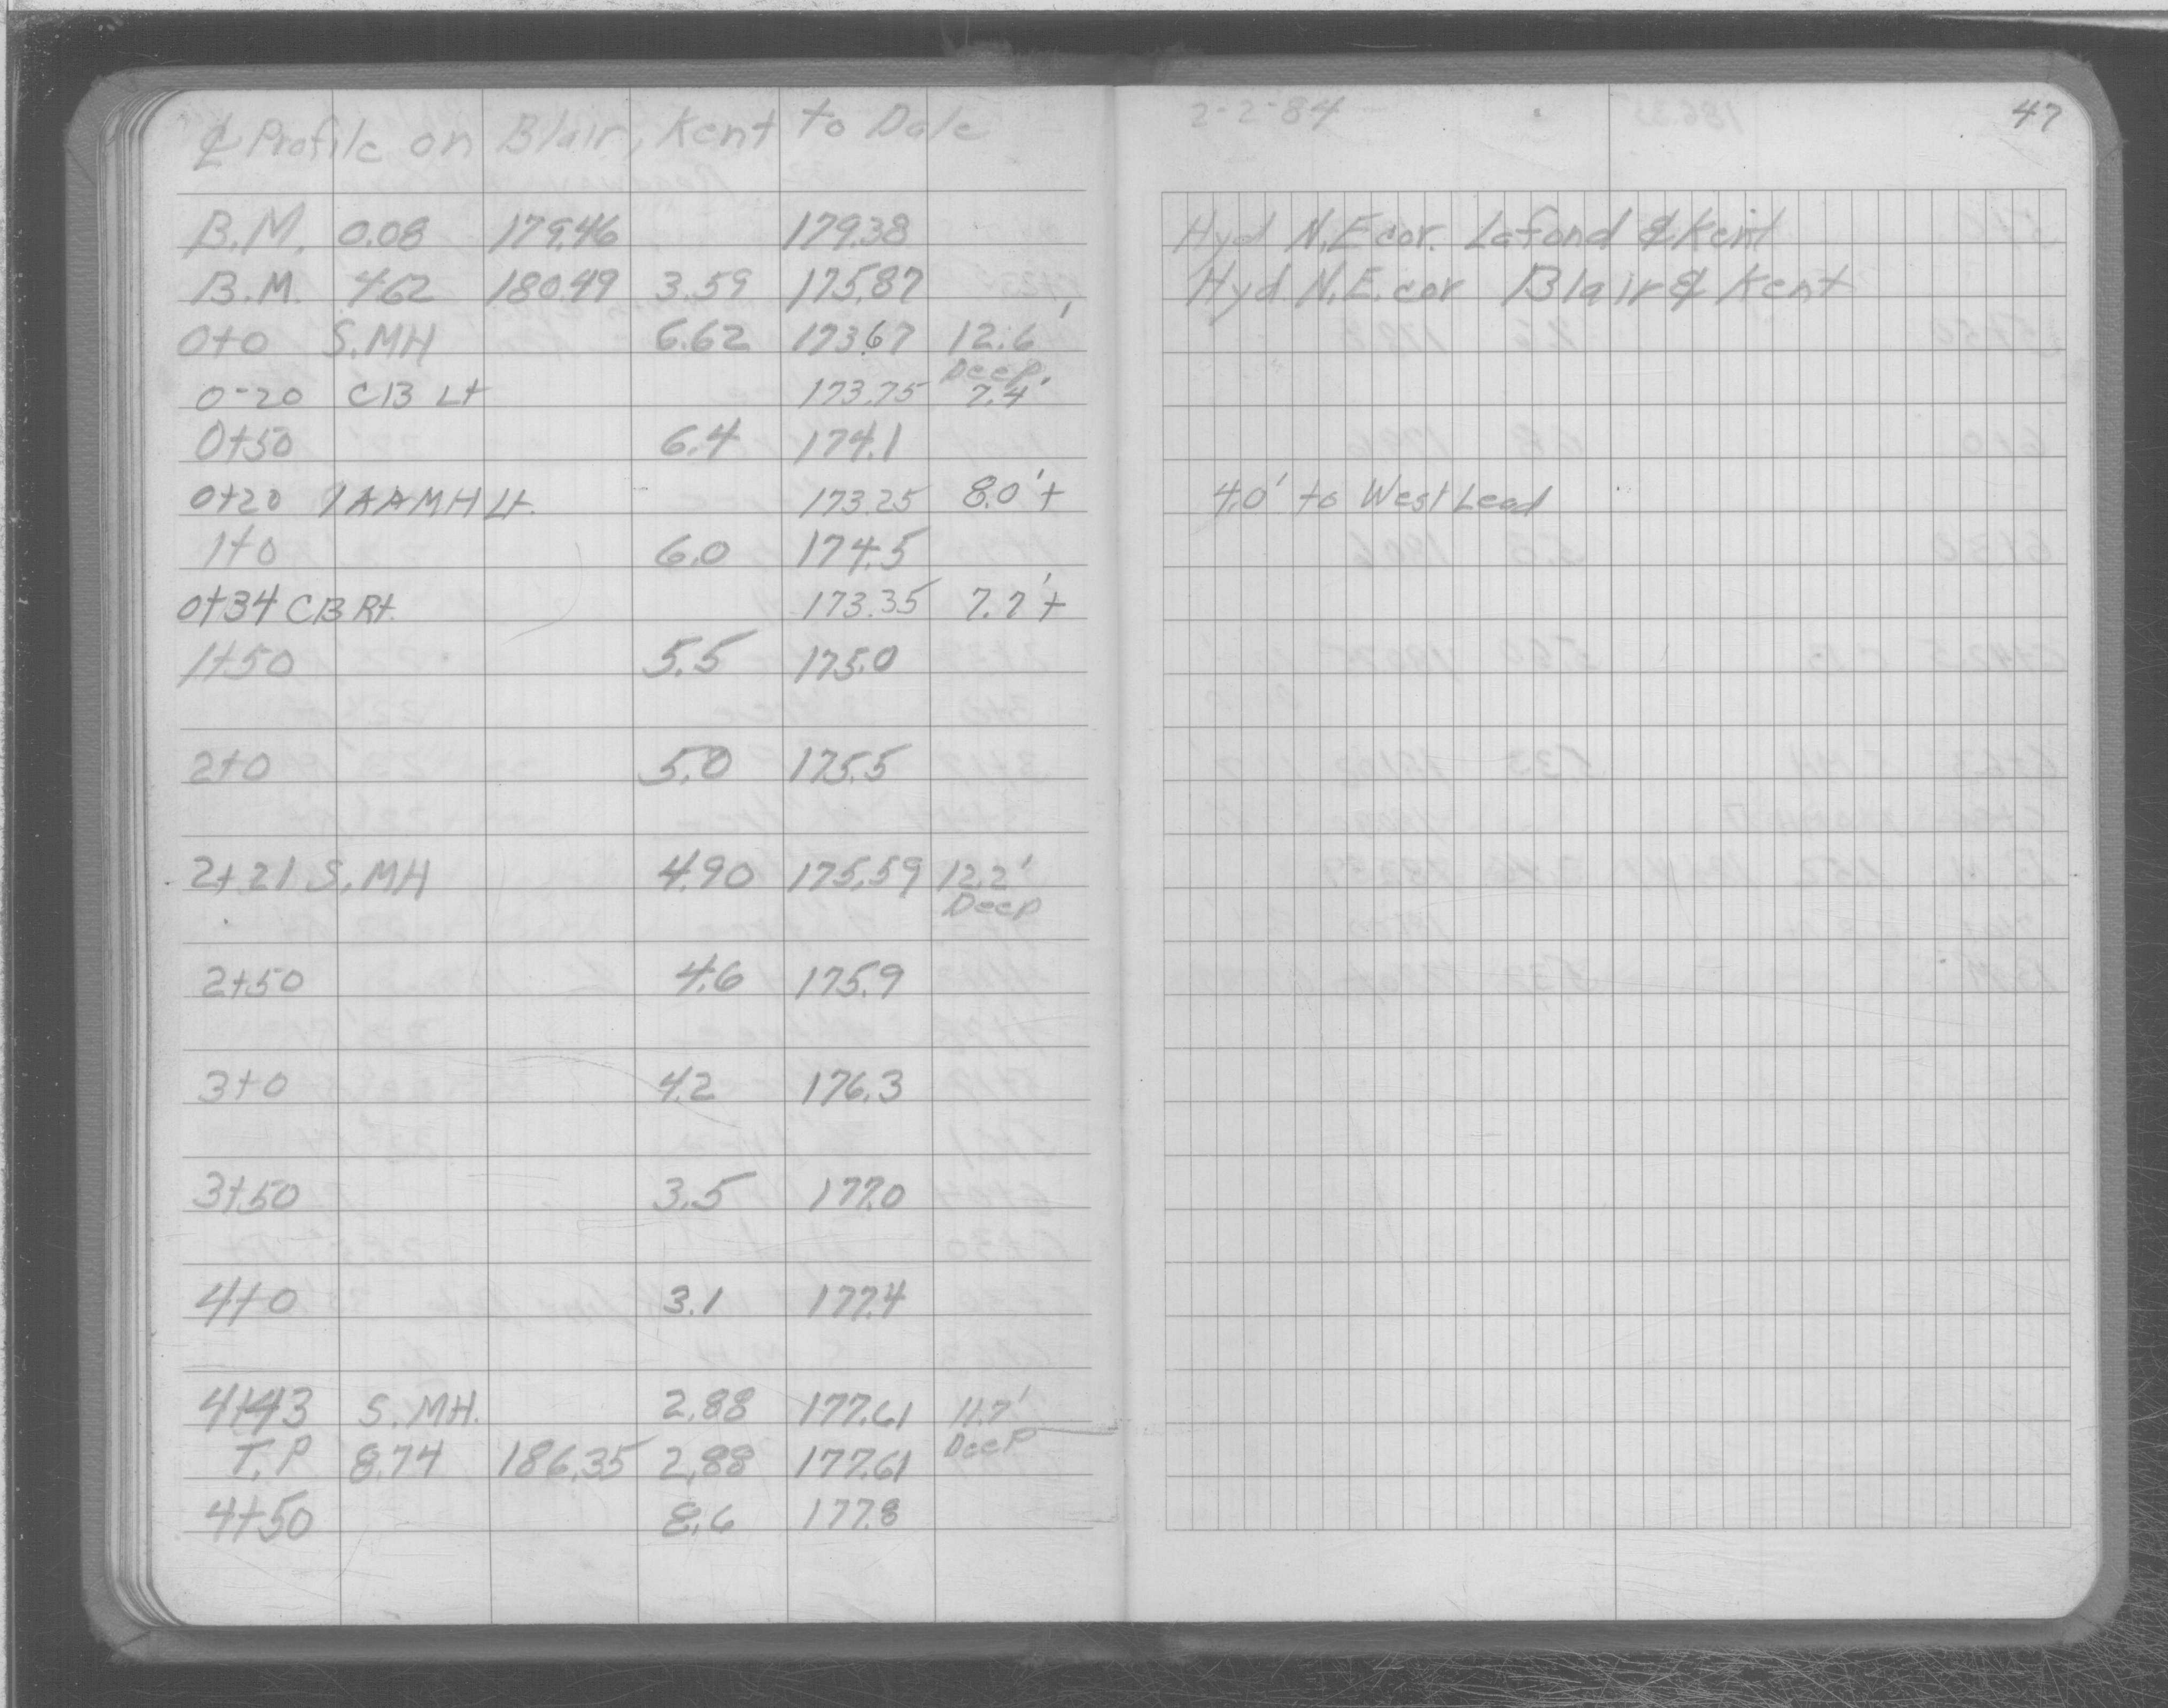 ℄ Profile on Blair, Kent to Dale
B.M. 0.08 179.46 179.38
B.M. 4.62 180.49 3.59 175.87
0+0 S.MH 6.62 173.67 12.6'
Deep
0-20 CB Lt 173.75 7.4'
0+50 6.4 174.1
0+20 MH Lt. 173.25 8.0'+
1+0 6.0 174.5
0+34 CB Rt. 173.35 7.7'+
1+50 5.5 175.0
2+0 5.0 175.5
2+21 S.MH 4.90 175.59 12.2'
Deep
2+50 4.6 175.9
3+0 4.2 176.3
3+50 3.5 177.0
4+0 3.1 177.4
4+43 S.MH. 2.88 177.61 11.7'
Deep
T.P 8.74 186.35 2.88 177.61
4+50 8.6 177.8
2-2-84 47
Hyd N.E cor. Lafond & Kent
Hyd. N.E. cor Blair & Kent
4.0' to West Lead